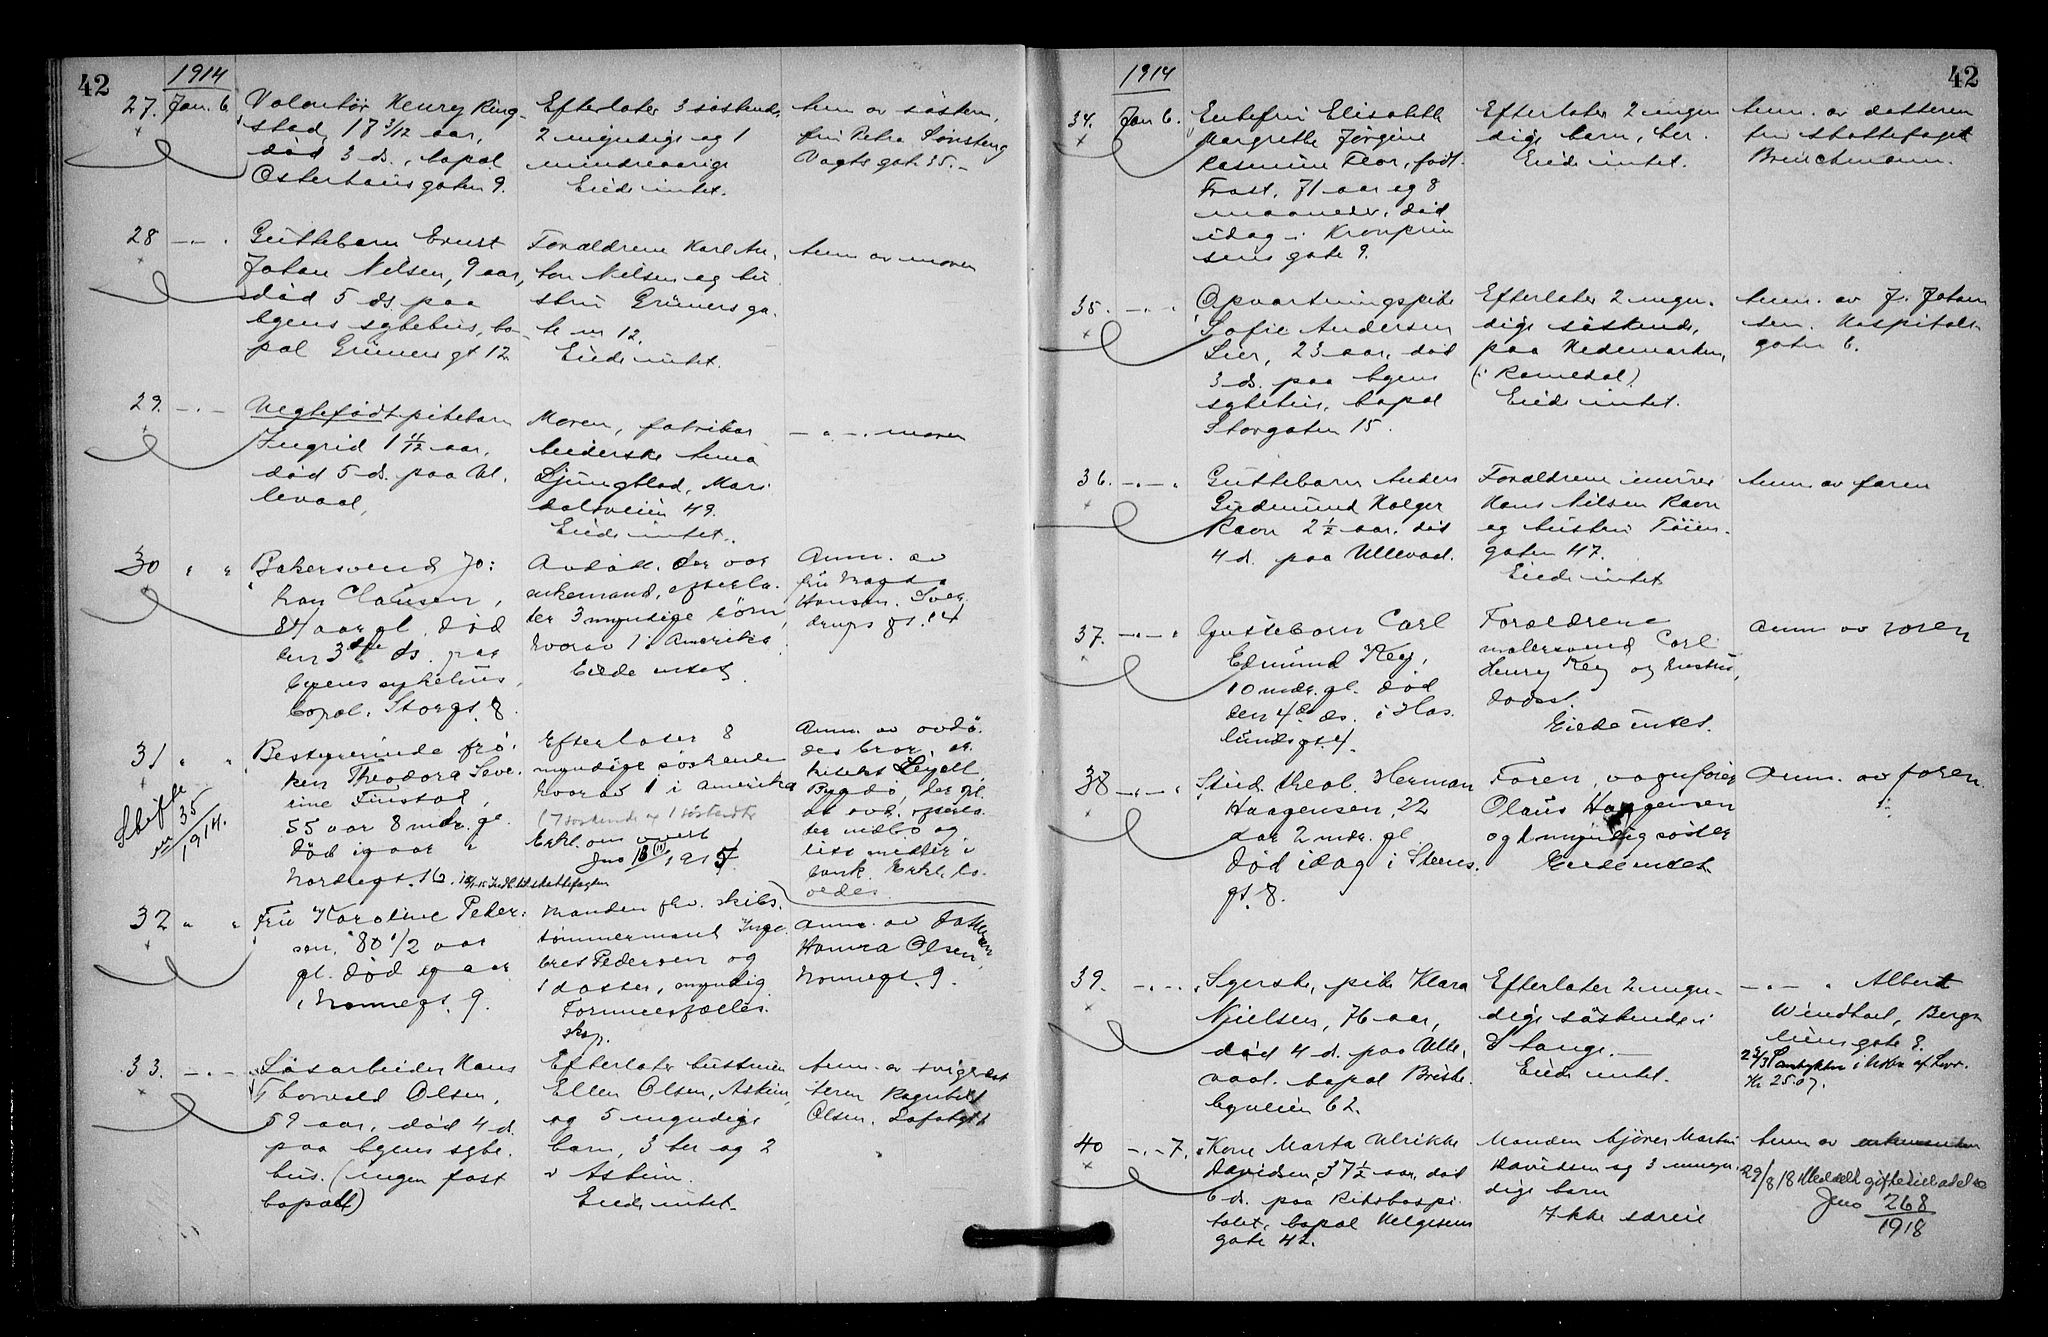 42
1914
27. Jan. 6
Volontør Henry Ring-
stad, 17 3/12 aar,
død 3 ds., bopæl
Osterhausgaten 9.
Efterlater 3 søskende,
2 myndige og 1
mindreaarige
Eiede intet.
Anm. av søsteren,
fru Petra Sønsteng
Vogtsgat. 35.-
28 -.-
Guttebarn Ernst
Johan Nilsen, 9 aar,
død 5 ds. paa
byens sykehus, bo-
pæl Grünersgt. 12
Forældrene Karl An-
ton Nilsen og hu-
stru Grünersga-
te nr 12.
Eiede intet.
Anm. av moren
29. -.-
Uegtefødt pikebarn
Ingrid 1 4/12 aar,
død 5 ds. paa Ul-
levaal,
Moren, fabrikar-
beiderske Anna
Ljungblad, Mari-
dalsveien 49.
Eiede intet.
-"-. moren
30 " "
Bakersvend Jo:
han Clausen,
84 aar gl. død
den 3die ds. paa
byens sykehus,
bopæl. Storgt. 8.
Avdøde, der var
enkemand, efterla-
ter 3 myndige børn,
hvorav 1 i Amerika
Eiede intet.
Anm. av
fru Magda
Hansen. Sver-
drups gt. 14
31 " "
Bestyrerinde frø-
ken Theodora Seve-
rine Finstad,
55 aar 8 mdr. gl.
død igaar i
Nordregt. 16.
Skifte
nr 35/1914.
Indb. til skattefogden
Efterlater 8
myndige søskende
hvorav 1 i Amerika
(7 søskende og 1 søskendb.
Erkl. om
Jno 16 1915
Anm. av avdø-
des bror, ar-
kitekt
Bygdø, der opl.
at avd. efterla-
ter indbo og
litt midler i
bank. Erkl. la-
vedes.
32 " "
Fru Karoline Peder:
sen, 80 1/2 aar
gl. død igaar
i Nonnegt. 9.
Manden fhv. skibs-
tømmermand Inge-
bret Pedersen og
1 datter, myndig.
Formuesfælles-
skap.
Anm. av datteren
Hanna Olsen,
Nonnegt. 9.
33. -.-
Løsarbeider Hans
Thorvald Olsen,
59 aar, død 4 ds.
paa byens syke-
hus. (ingen fast
bopæl)
Efterlater hustruen
Ellen Olsen, Askim,
og 5 myndige
barn, 3 her og 2
i Askim.
Eiede intet.
Anm. av svigerdat-
teren Ragnhild
Olsen.
42
1914
34. Jan 6.
Enkefru Elisabeth
Margrethe Jørgine
Rasmine Flor, født
Frost, 71 aar og 8
maaneder, død
idag i Kronprin-
sens gate 9.
Efterlater 2 myn-
dige barn, her.
Eiede intet.
Anm. av datteren
fru skattefoged
Brinchmann.
35. -.-
Opvartningspike
Sofie Andersen
Lier, 23 aar, død
3 ds. paa byens
sykehus, bopæl
Storgaten 15.
Efterlater 2 myn-
dige søskende,
paa Hedemarken,
(i Romedal)
Eiede intet.
Anm. av J. Johan-
sen. Hospitals-
gaten 6.
36. -.-
Guttebarn Anders
Gudmund Holger
Ravn 2 1/2 aar, død
4 d. paa Ullevaal.
Forældrene murer
Hans Nilsen Ravn
og hustru Tøien-
gaten 47.
Eiede intet
Anm av faren
37. -.-
Guttebarn Carl
Edmund Key,
10 mdr. gl. død
den 4de ds. i Has-
lundsgt. 4.
Forældrene
malersvend Carl
Henry Key og hustru,
sodest.
Eiede intet.
Anm av faren
38 -.-
Stud. theol. Herman
Haagensen, 22
aar 2 mdr. gl.
død idag i Stens-
gt. 8.
Faren, vognfører
Olaus Haagensen
og 1 myndig søster
Eiede intet
Anm. av faren
39. -.-
Syerske, pike Klara
Nielsen, 76 aar,
død 4 d. paa Ulle-
vaal. bopæl Briske-
byveien 62.
Efterlater 2 myn-
dige søskende i
Stange.
Eiede intet.
-.- Albert
Windhol, Berg-
liensgate 8.
40 -.-7.
Kone Marta Ulrikke
Davidsen, 37 1/2 aar, død
6 ds. paa Rikshospi-
talet, bopæl Helgesens
gate 42.
Manden kjører Martin
Davidsen og 3 umyn-
dige barn
Ikke særeie
Anm av enkemanden
29/8 18 Meddelt giftetilladelse
Jno 268/1918